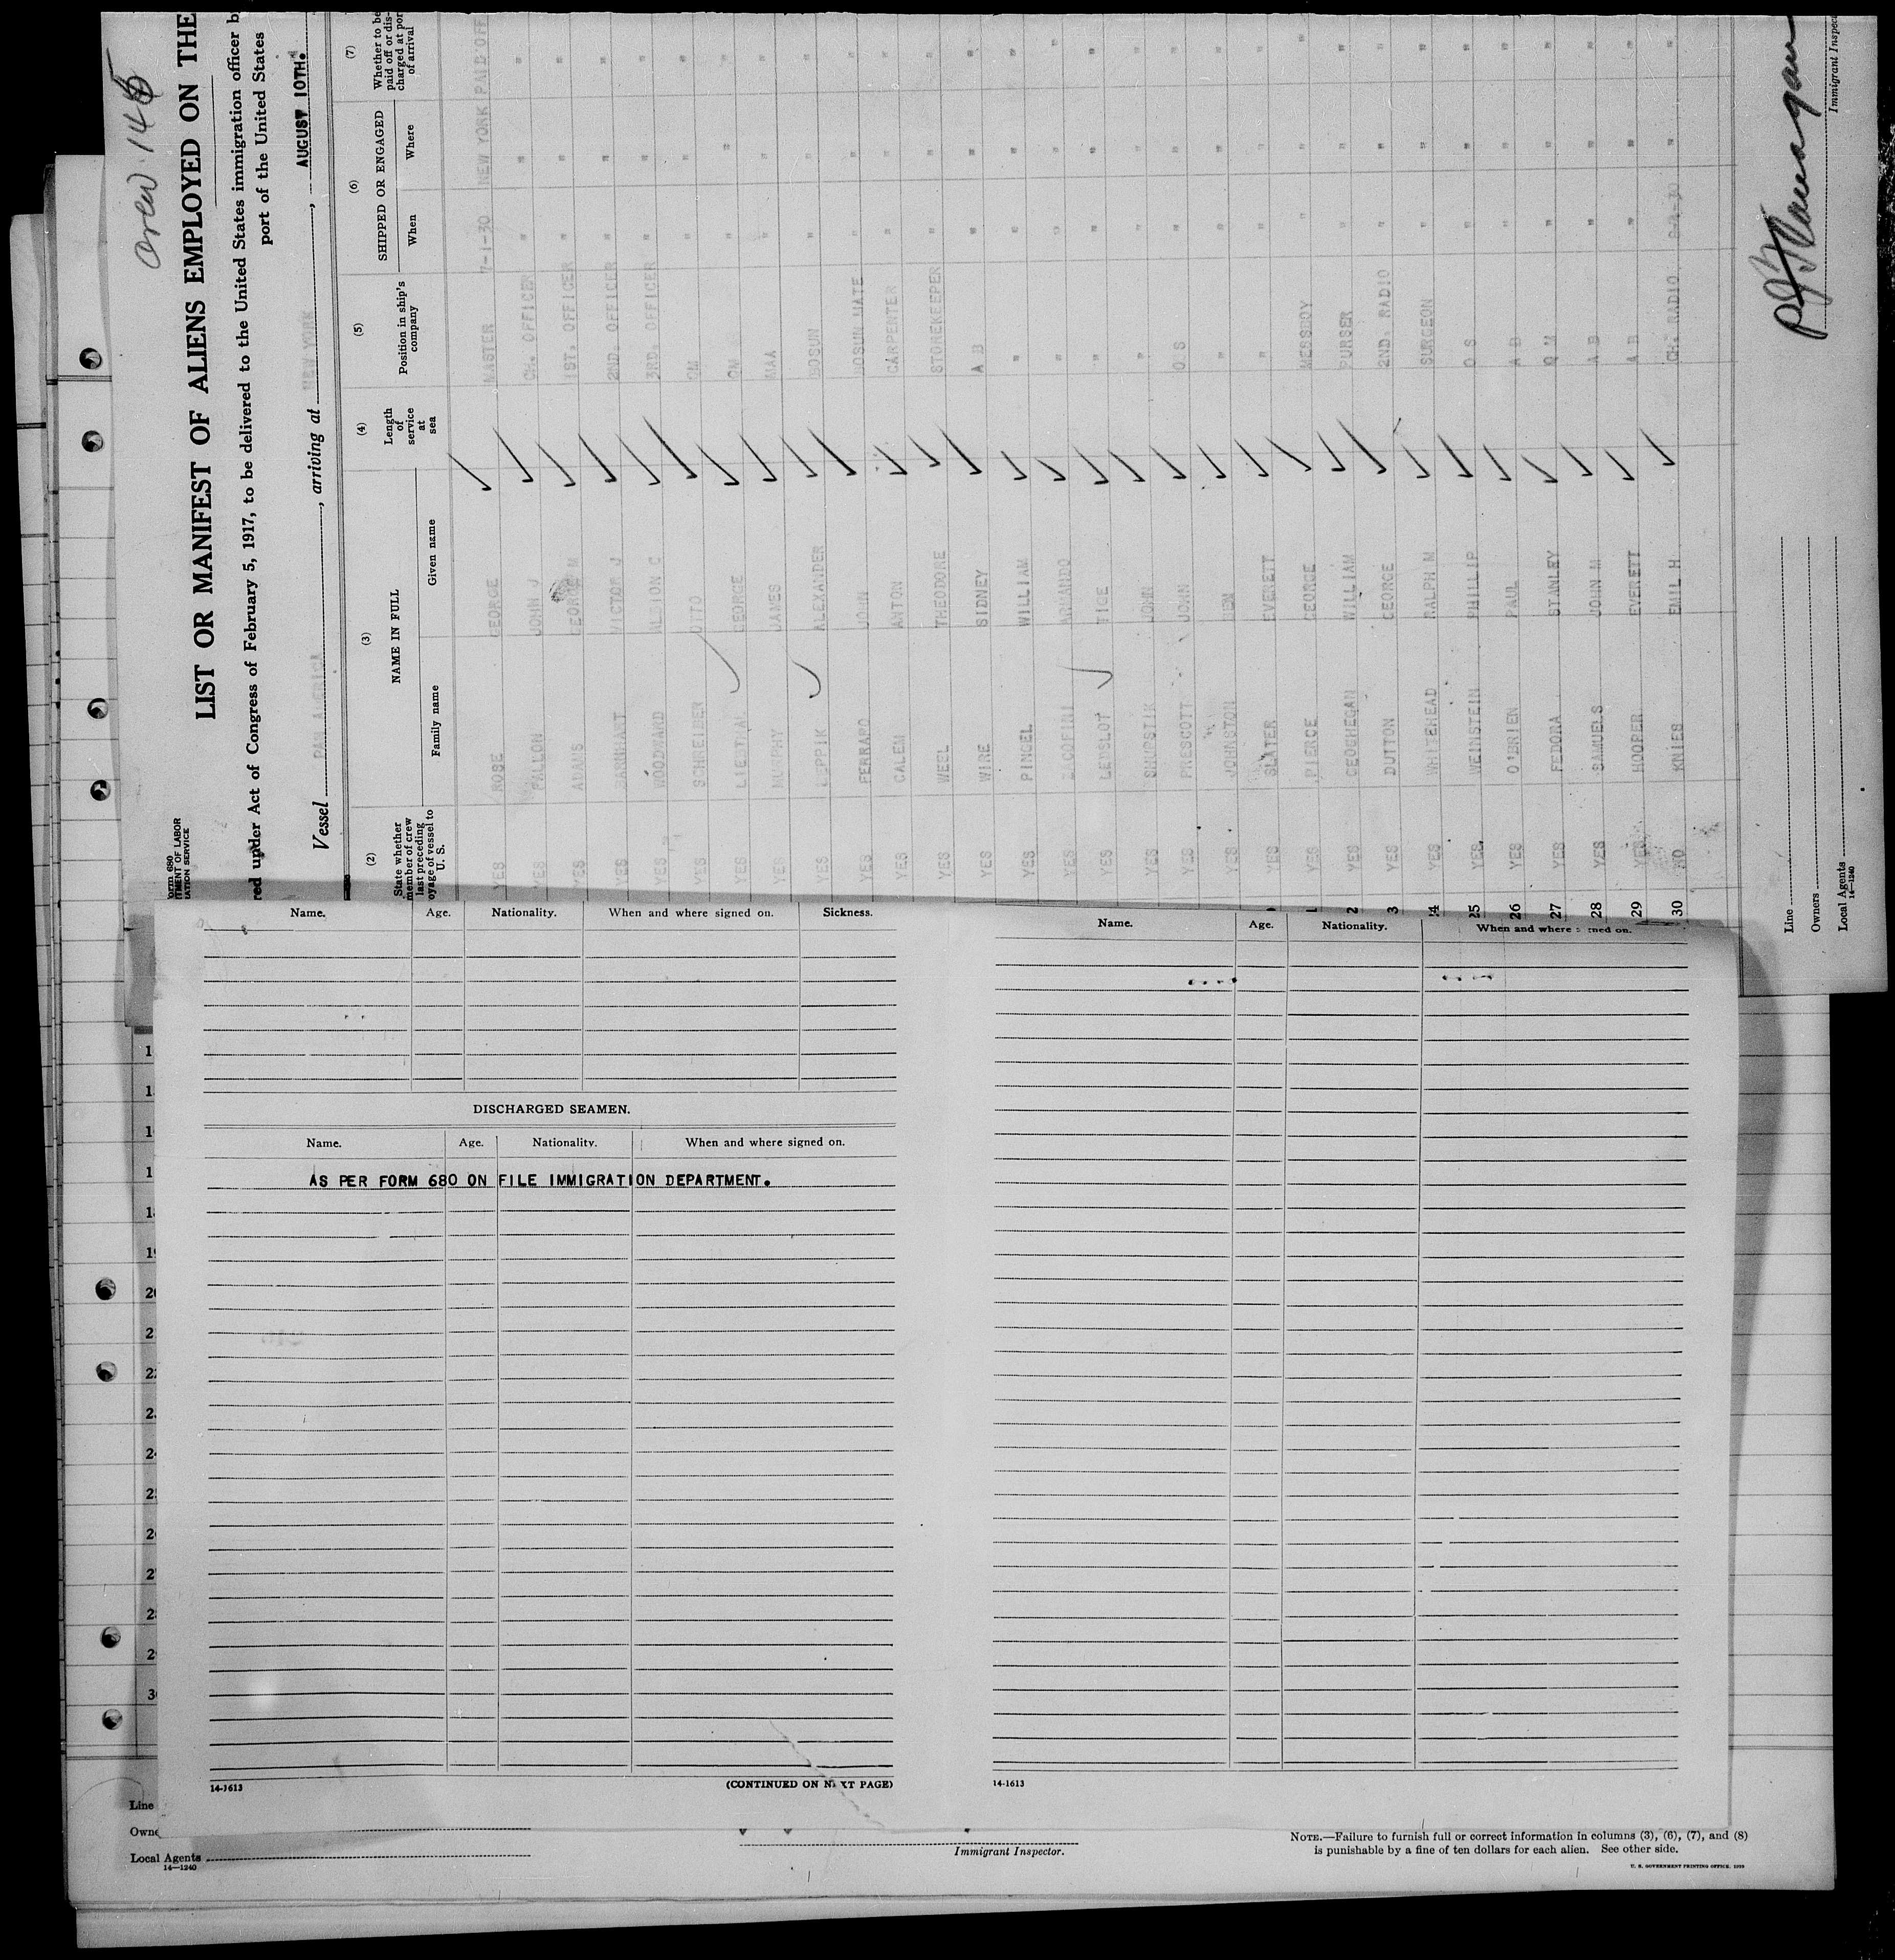 Crew 145
Form 680
LIST OR MANIFEST OF ALIENS EMPLOYED ON THE
red under Act of Congress of February 5, 1917, to be delivered to the United States immigration officer b
port of the United States
Vessel PAN AMERICA, arriving at NEW YORK, AUGUST 10TH.
(2) (3) (4) (5) (6) (7)
State whether member of crew last preceding voyage of vessel to U. S.
NAME IN FULL
Family name Given name
Length of service at sea
Position in ship's company
SHIPPED OR ENGAGED
When Where
Whether to be paid off or dis-charged at port of arrival
YES ROSE GEORGE MASTER 7-1-30 NEW YORK PAID OFF
YES FALLON JOHN J CH. OFFICER " " "
YES ADAMS GEORGE M 1ST. OFFICER " " "
YES BARNHART VICTOR J 2ND. OFFICER " " "
YES WOODWARD ALBION C 3RD. OFFICER " " "
YES SCHREIBER OTTO QM " " "
YES GEORGE QM " " "
YES MURPHY JAMES MAA " " "
YES LEPPIK ALEXANDER BOSUN " " "
YES FERRARO JOHN BOSUN MATE " " "
YES CALEM ANTON CARPENTER " " "
YES WEEL THEODORE STOREKEEPER " " "
YES WIRE SIDNEY A B " " "
YES PINGEL WILLIAM " " " "
YES ARMANDO " " " "
YES " " " "
YES JOHN " " " "
YES PRESCOTT JOHN O S " " "
YES JOHNSTON BEN " " " "
YES SLATER EVERETT " " " "
YES PIERCE GEORGE MESSBOY " " "
2 YES GEOGHEGAN WILLIAM PURSER " " "
3 YES DUTTON GEORGE 2ND. RADIO " " "
24 YES WHITEHEAD RALPH M SURGEON " " "
25 YES WEINSTEIN PHILLIP O S " " "
26 YES O'BRIEN PAUL A B " " "
27 YES FEDORA STANLEY Q M " " "
28 YES SAMUELS JOHN M A B " " "
29 YES HOOPER EVERETT A B " " "
30 NO KNIES EMIL H CH. RADIO " "
Immigrant Inspec
Line
Owners
Local Agents
14—1240
Name. Age. Nationality. When and where signed on. Sickness.
DISCHARGED SEAMEN.
Name. Age. Nationality. When and where signed on.
AS PER FORM 680 ON FILE IMMIGRATION DEPARTMENT.
14-1613 (CONTINUED ON NEXT PAGE)
Name. Age. Nationality. When and where signed on.
14-1613
19
20
21
22
24
Line
Owne
Local Agents
14—1240
Immigrant Inspector.
NOTE.—Failure to furnish full or correct information in columns (3), (6), (7), and (8)
is punishable by a fine of ten dollars for each alien. See other side.
U. S. GOVERNMENT PRINTING OFFICE: 1929